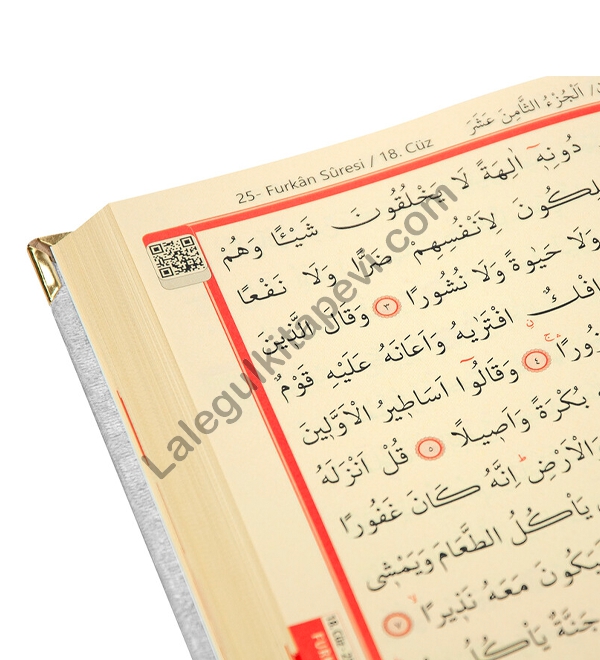 25- Furkân Sûresi / 18. Cüz
/ اَلْجُزْءُ الثَّامِنَ عَشَرَ
دُونِه۪ٓ اٰلِهَةً لَا يَخْلُقُونَ شَيْـًٔا وَهُمْ
لِاَنْفُسِهِمْ ضَرًّا وَلَا نَفْعًا
وَلَا حَيٰوةً وَلَا نُشُورًا ٣ وَقَالَ الَّذ۪ينَ
افْتَرٰيهُ وَاَعَانَهُ عَلَيْهِ قَوْمٌ
٤ وَقَالُٓوا اَسَاط۪يرُ الْاَوَّل۪ينَ
بُكْرَةً وَاَص۪يلًا ٥ قُلْ اَنْزَلَهُ
وَالْاَرْضِ اِنَّهُ كَانَ غَفُورًا
يَأْكُلُ الطَّعَامَ وَيَمْش۪ي
مَعَهُ نَذ۪يرًا ٧
جَنَّةٌ يَأْكُلُ
18. Cüz
Lalegulkitapevi.com